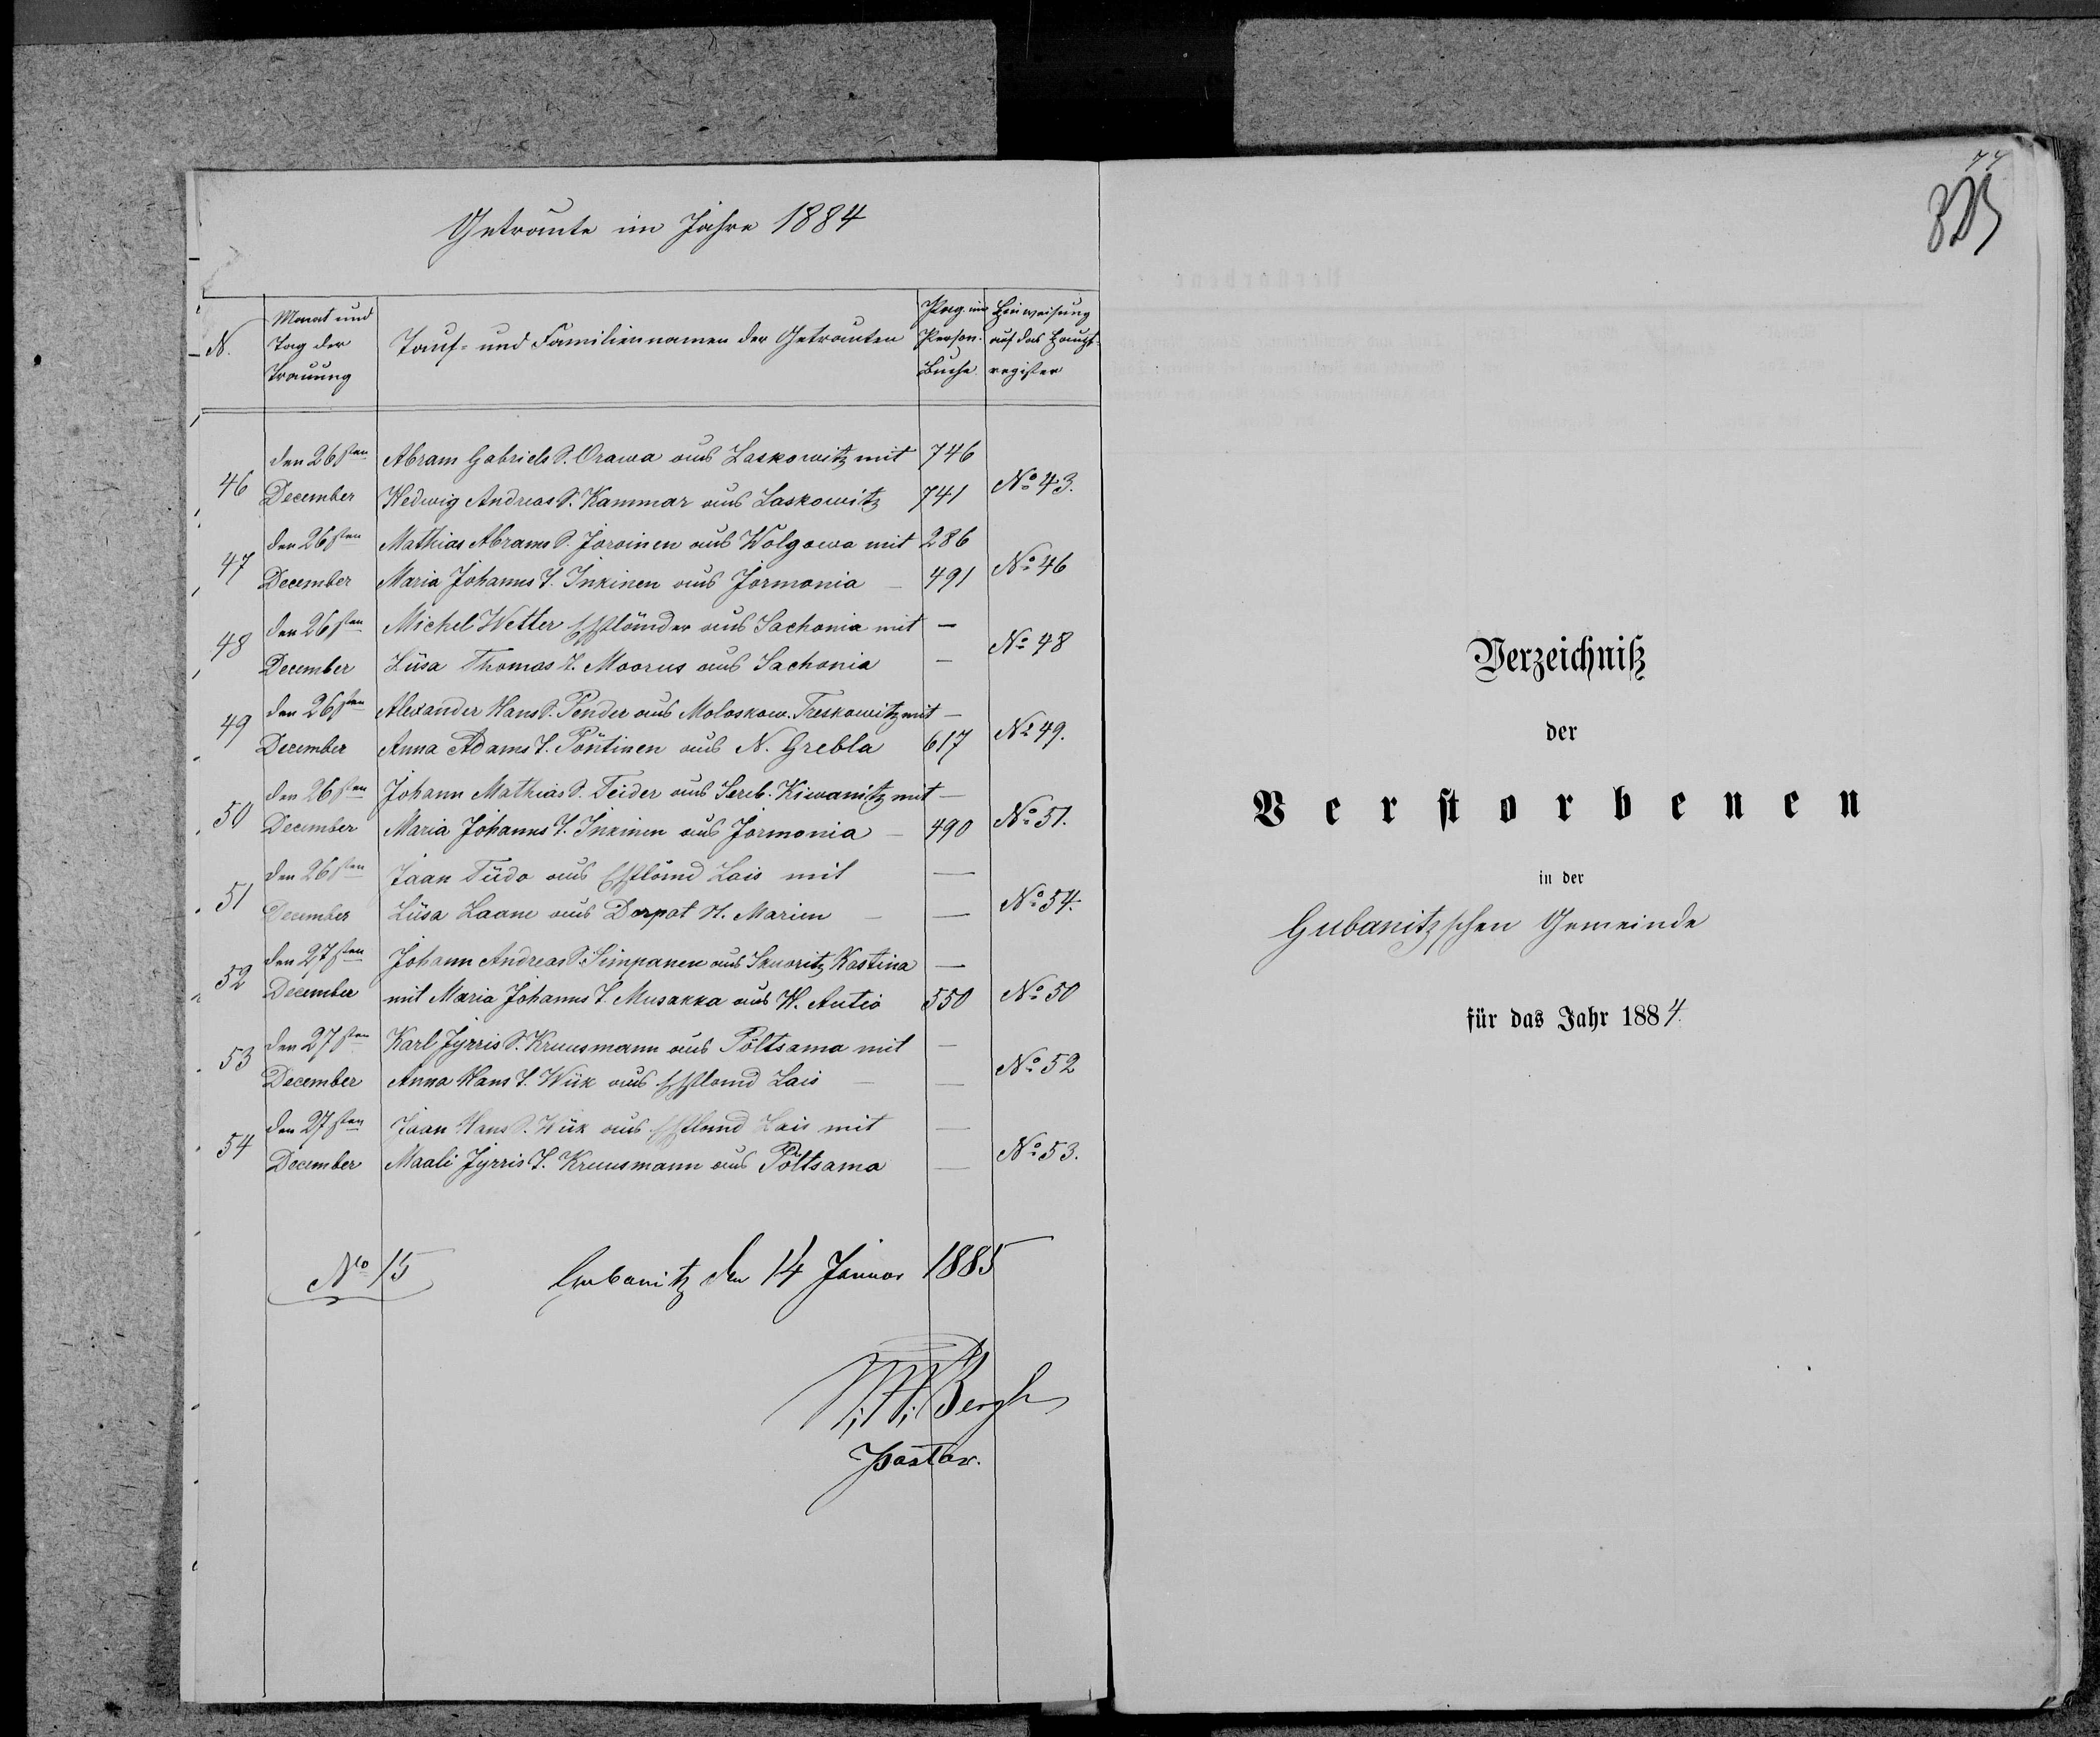 Getraute im Jahre 1884
N.
Monat und
Tag der
Trauung
Tauf- und Familiennamen der Getrauten
Pag. im
Person.
Buche.
Hinweisung
auf das Haupt-
register
46
den 26sten
December
Abram Gabriels S. Orawa aus Laskowitz mit 746
Hedwig Andreas T. Kammar aus Laskowitz 741
No 43.
47
den 26sten
December
Mathias Abrams S. Jaroinen aus Wolgowa mit 286
Maria Johanns T. Inkinen aus Jarmonia – 491
No 46
48
den 26sten
December
Michel Wetter Esthländer aus Sachonia mit –
Lüsa Thomas T. Moorus aus Sachonia –
No 48
49
den 26sten
December
Alexander Hans S. Pender aus Moloskow. Treskowitz mit –
Anna Adams T. Pöntinen aus N. Grebla 617
No 49.
50
den 26sten
December
Johann Mathias S. Teider aus Sereb. Kiwanitz mit –
Maria Johanns T. Inkinen aus Jarmonia – 490
No 51.
51
den 26sten
December
Jaan Tüdo aus Esthland Lais mit –
Lüsa Laane aus Dorpat St. Marien – –
No 54.
52
den 27sten
December
Johann Andreas S. Simpanen aus Skworitz Kastina –
mit Maria Johanns T. Musakka aus W. Autio 550
No 50
53
den 27sten
December
Karl Jyrris S. Kruusmann aus Pöltsama mit –
Anna Hans T. Wiik aus Esthland Lais – –
No 52
54
den 27sten
December
Jaan Hans S. Wiik aus Esthland Lais mit –
Maali Jyrris T. Kruusmann aus Pöltsama –
No 53.
No 15
Gubanitz den 14 Januar 1885
Bergh
Pastor.
77
Verzeichniß
der
Verstorbenen
in der
Gubanitzschen Gemeinde
für das Jahr 1884.